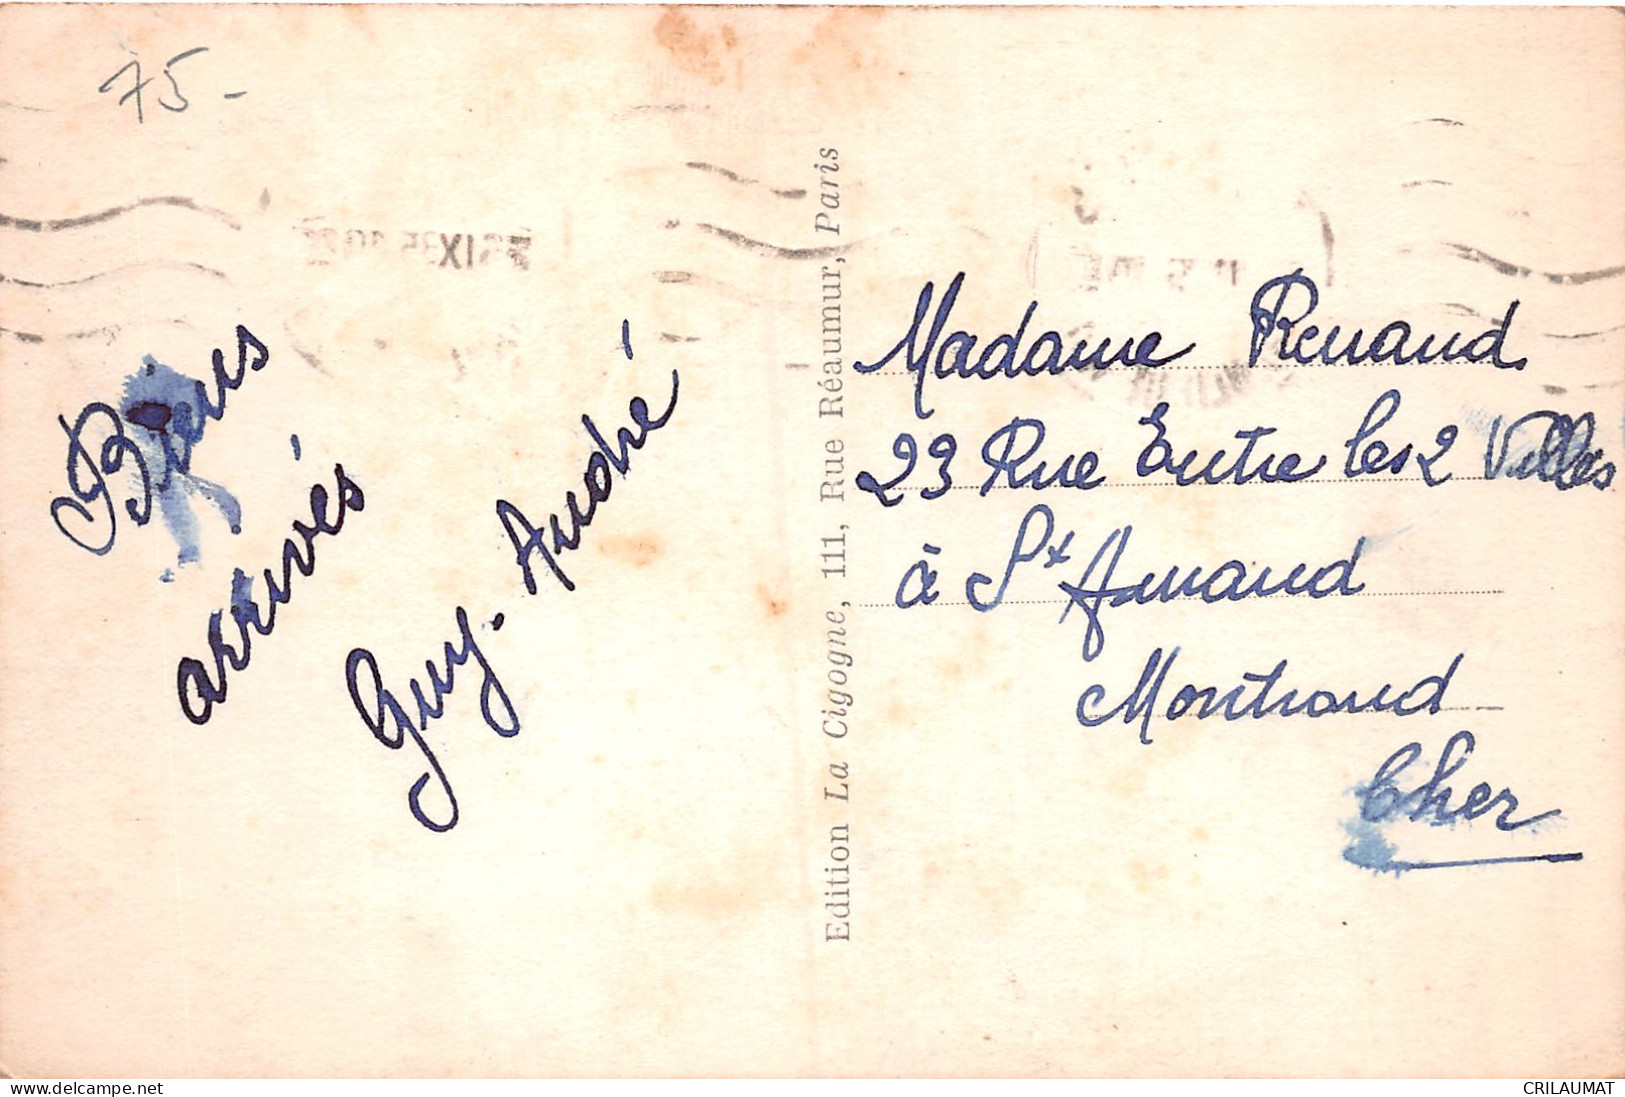 75-
Biens
arrivés
Guy. André
Edition La Cigogne, 111, Rue Réaumur, Paris
Madame Renaud
23 Rue Entre les 2 Villes
à St Amand
Montrond
Cher
www.delcampe.net
CRILAUMAT